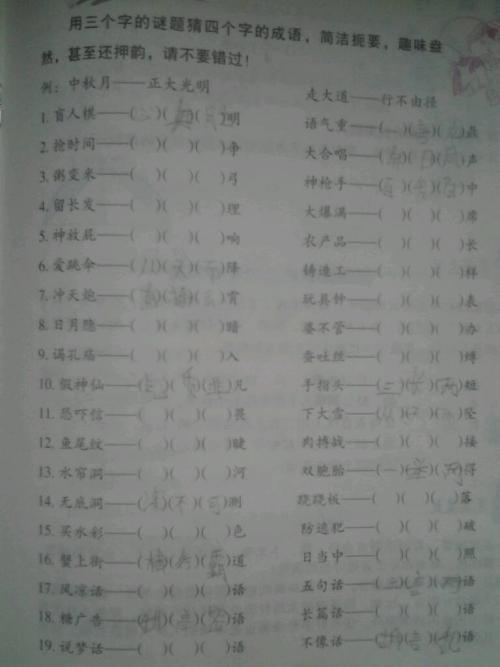 用三个字的谜题猜四个字的成语，简洁扼要，趣味盎
然，甚至还押韵，请不要错过！
例：中秋月——正大光明 走大道——行不由径
1. 盲人棋——( )( )( )明 语气重——(一)(言)( )鼎
2. 抢时间——( )( )( )争 大合唱——( )(口)( )声
3. 粥变米——( )( )( )弓 神枪手——(百)( )(百)中
4. 留长发——( )( )( )理 大爆满——( )( )( )席
5. 神放屁——( )( )( )响 农产品——( )( )( )长
6. 爱跳伞——(从)(天)(而)降 铸造工——( )( )( )样
7. 冲天炮——( )( )( )霄 玩具钟——( )( )( )表
8. 日月隐——( )( )( )暗 婆不管——( )( )( )办
9. 谒孔庙——( )( )( )入 蚕吐丝——( )( )( )缚
10. 假神仙——( )( )( )凡 手指头——(三)(长)(两)短
11. 恐吓信——( )( )( )畏 下大雪——( )( )( )坠
12. 鱼尾纹——( )( )( )睫 肉搏战——( )( )( )接
13. 水帘洞——( )( )( )河 双胞胎——(一)(举)(两)得
14. 无底洞——(深)(不)(可)测 跷跷板——( )( )( )落
15. 买水彩——( )( )( )色 防逃犯——( )( )( )破
16. 蟹上街——(横)(行)(霸)道 日当中——( )( )( )照
17. 风凉话——( )( )( )语 五句话——(三)(言)(两)语
18. 糖广告——(甜)(言)(蜜)语 长篇话——( )( )( )语
19. 说梦话——( )( )( )语 不像话——(胡)(言)(乱)语